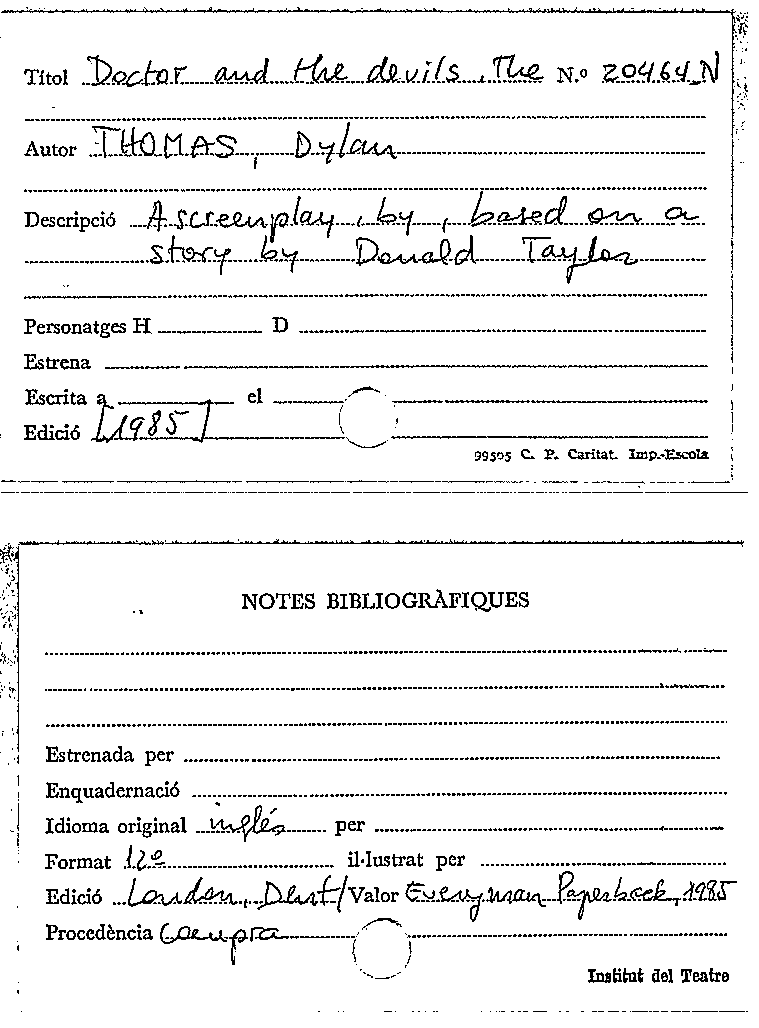 Títol Doctor and the devils, The N.º 20464-N
Autor THOMAS, Dylan
Descripció A screenplay, by, based on a
story by Donald Taylor
Personatges H D
Estrena
Escrita a el
Edició [1985]
99505 C. P. Caritat. Imp.-Escola
NOTES BIBLIOGRÀFIQUES
Estrenada per
Enquadernació
Idioma original inglés per
Format 12º il·lustrat per
Edició London, Dent/Valor Everyman Paperback, 1985
Procedència Compra
Institut del Teatre